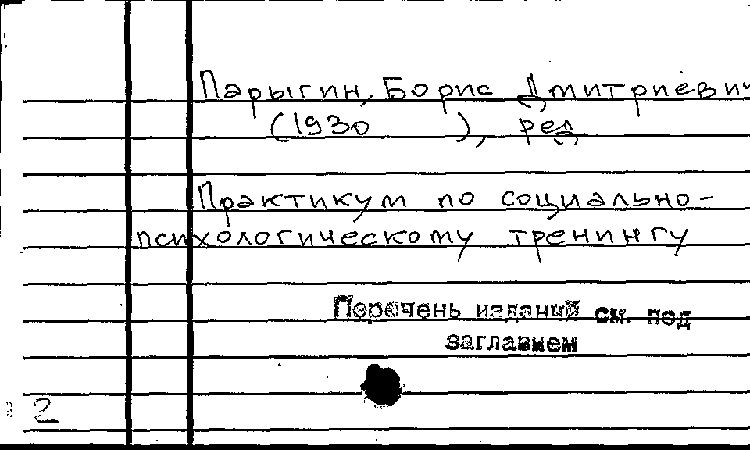 Парыгин, Борис Дмитриевич
(1930 ), ред
Практикум по социально-
психологическому тренингу
Перечень изданий см. под
заглавием
2